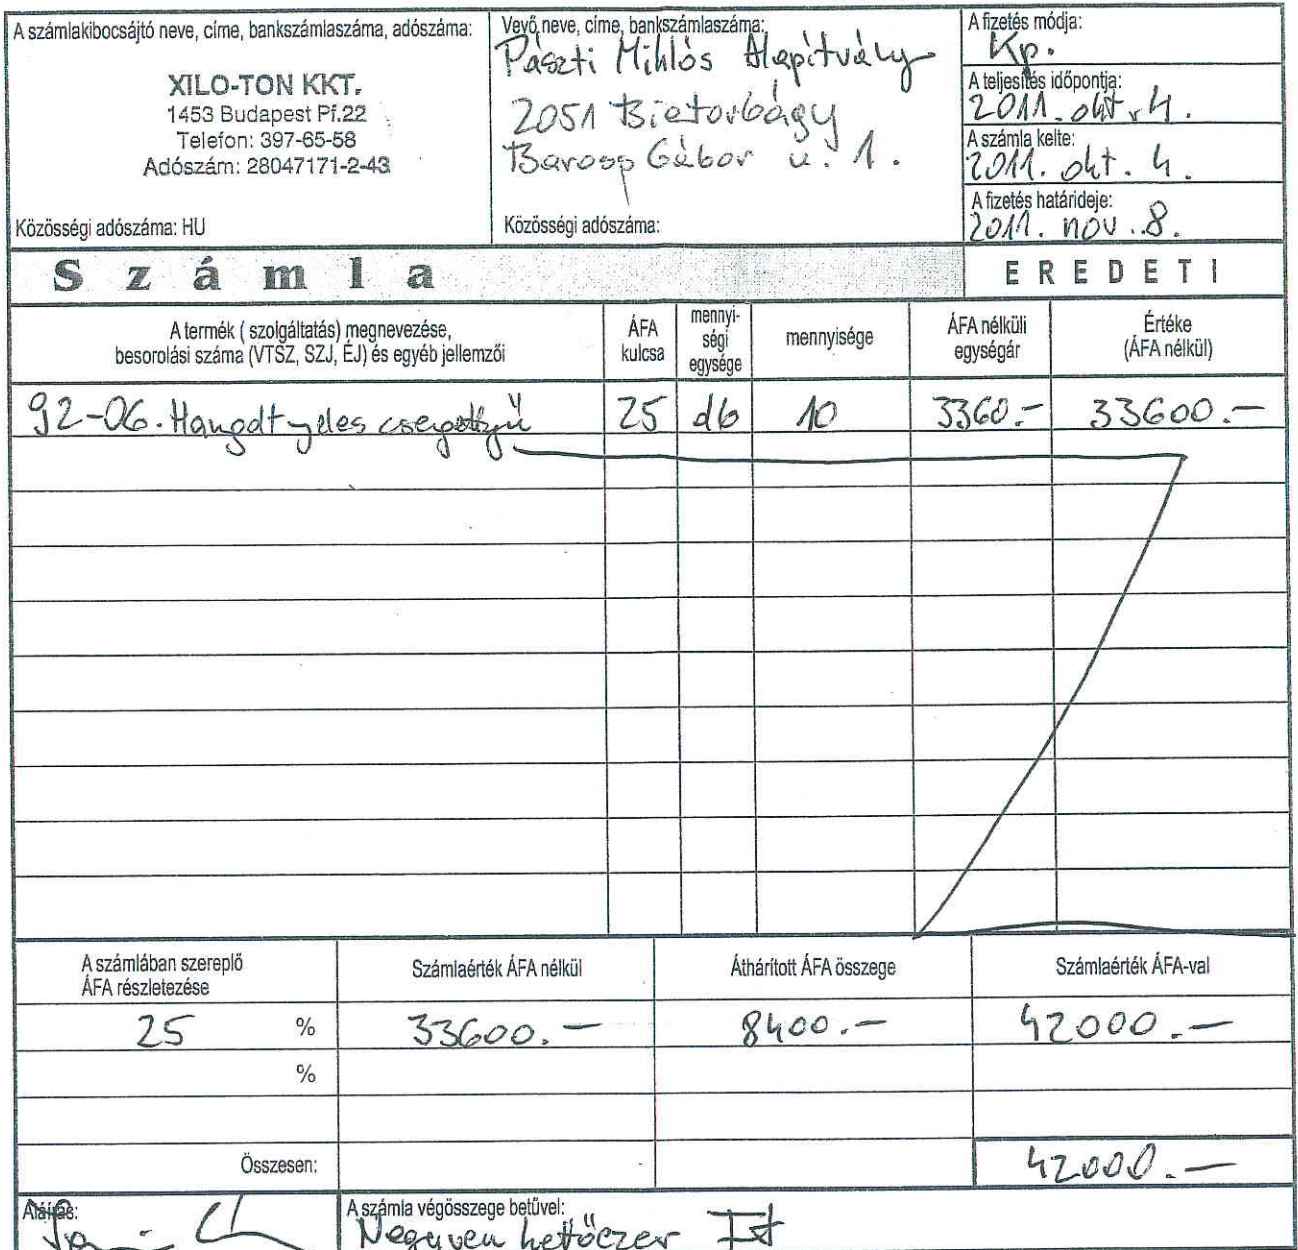 A számlakibocsájtó neve, címe, bankszámlaszáma, adószáma:
XILO-TON KKT.
1453 Budapest Pf.22
Telefon: 397-65-58
Adószám: 28047171-2-43
Közösségi adószáma: HU
Vevő neve, címe, bankszámlaszáma:
Pászti Miklós Alapítvány
2051 Biatorbágy
Baross Gábor u. 1.
Közösségi adószáma:
A fizetés módja:
Kp.
A teljesítés időpontja:
2011. okt. 4.
A számla kelte:
2011. okt. 4.
A fizetés határideje:
2011. nov. 8.
Számla
EREDETI
A termék ( szolgáltatás) megnevezése,
besorolási száma (VTSZ, SZJ, ÉJ) és egyéb jellemzői
ÁFA
kulcsa
mennyi-
ségi
egysége
mennyisége
ÁFA nélküli
egységár
Értéke
(ÁFA nélkül)
92-06. csengettyű 25 db 10 3360.- 33600.-
A számlában szereplő
ÁFA részletezése
Számlaérték ÁFA nélkül
Áthárított ÁFA összege
Számlaérték ÁFA-val
25 % 33600.- 8400.- 42000.-
%
Összesen: 42000.-
Aláírás:
A számla végösszege betűvel:
Negyven kettőezer Ft